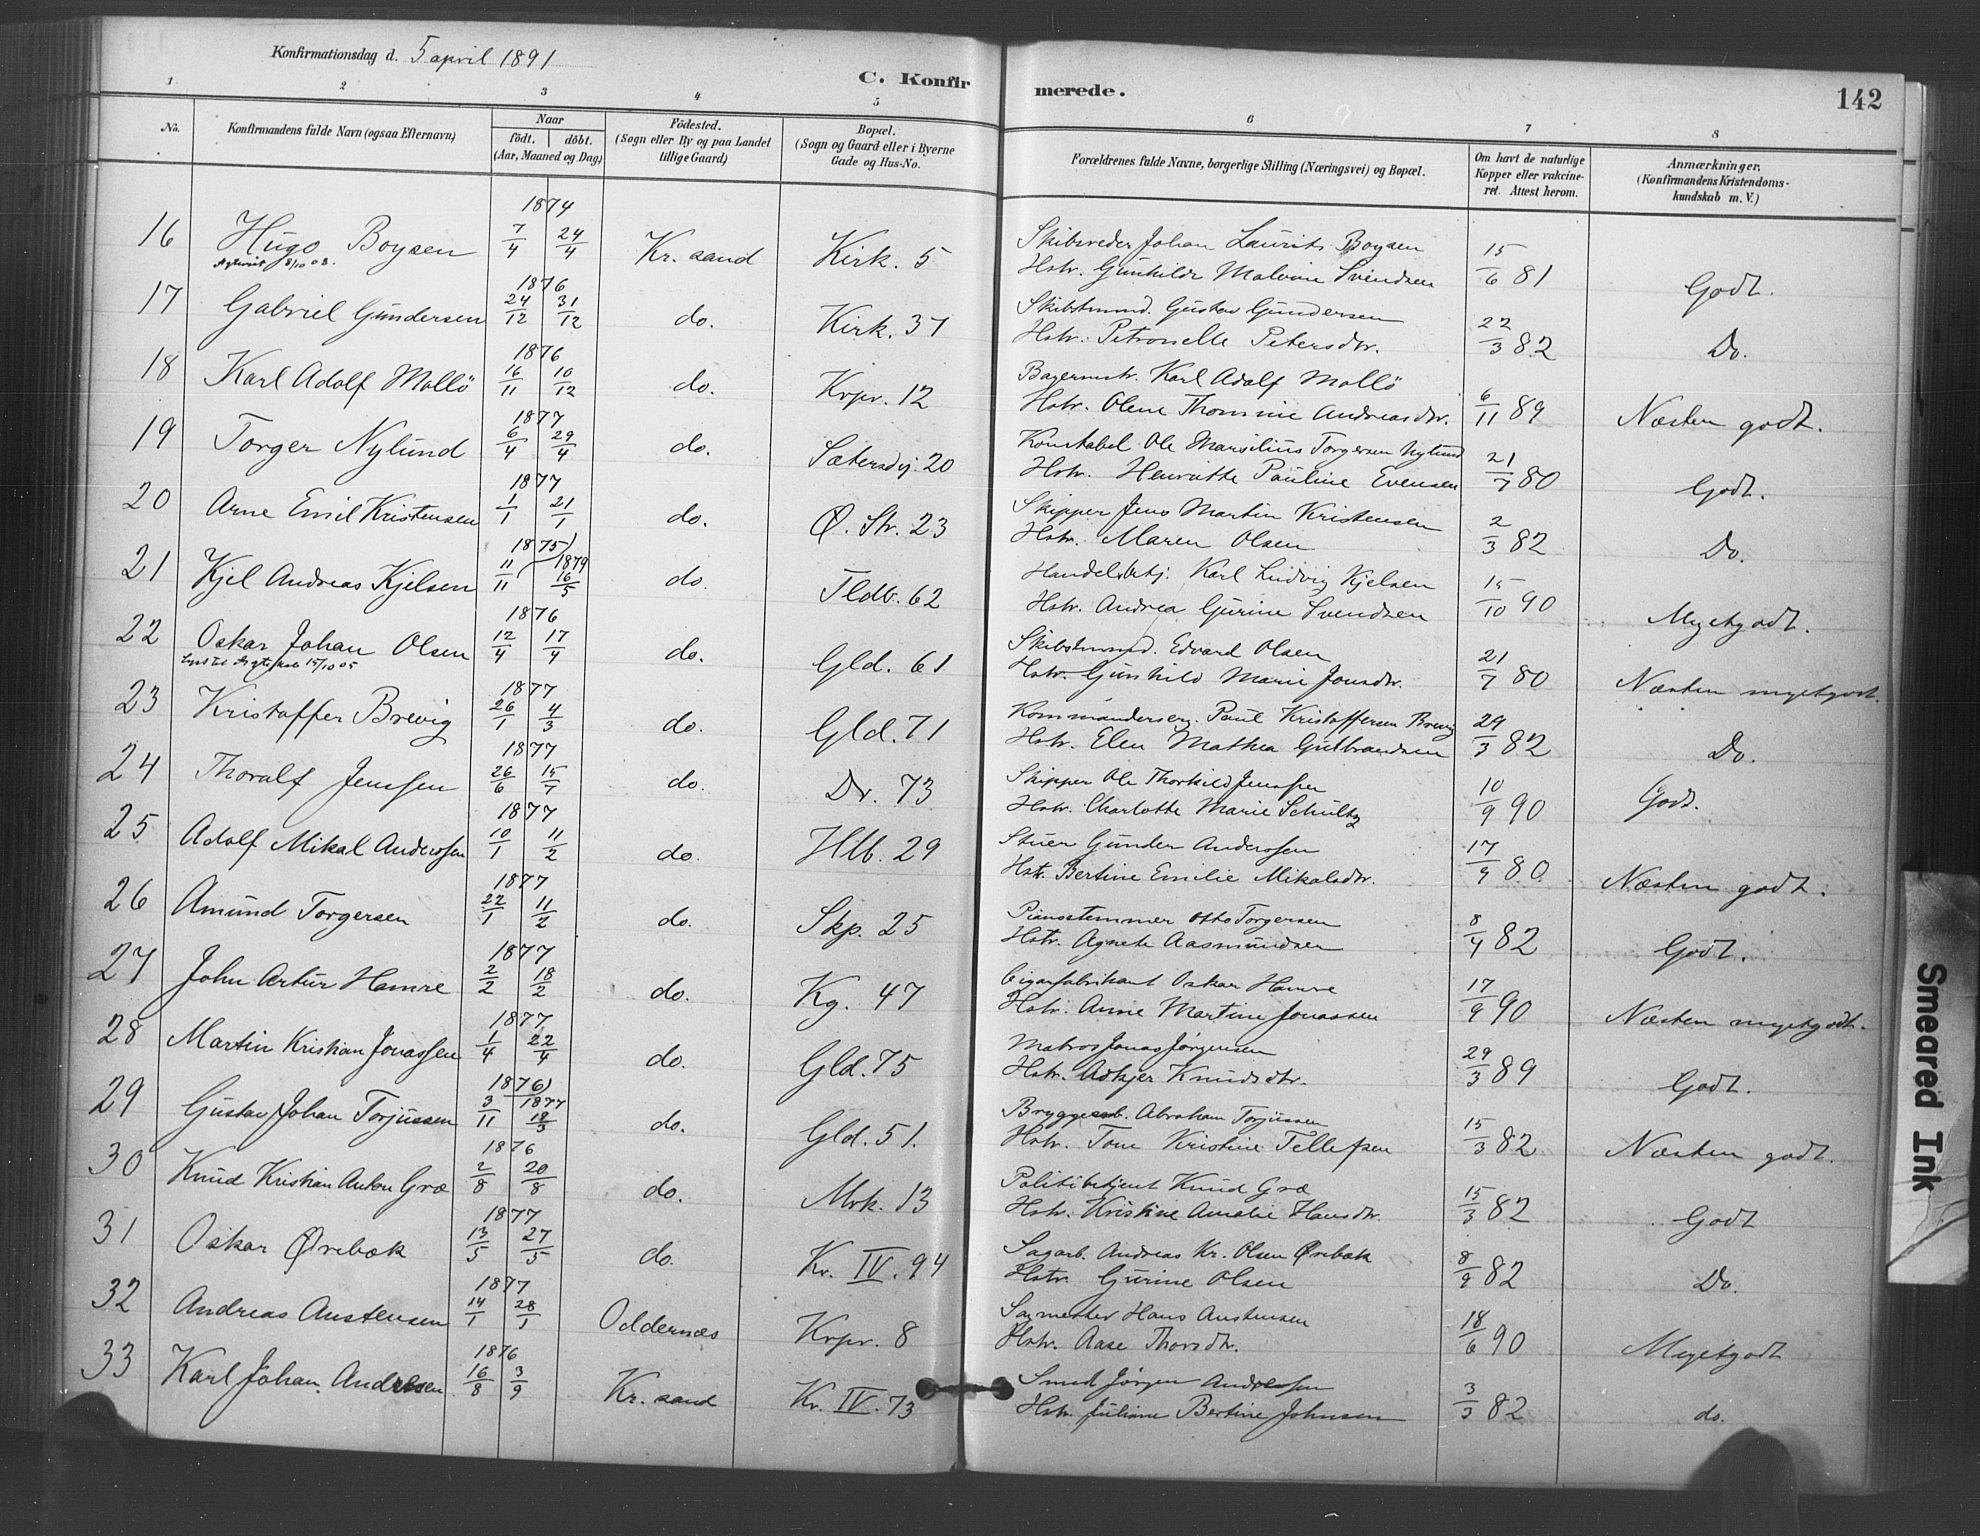 Konfirmationsdag d. 5 april 1891
C. Konfirmerede.
142
1 2 3 4 5 6 7 8
No. Konfirmandens fulde Navn (ogsaa Efternavn) Naar födt. döbt. (Aar, Maaned og Dag) Födested. (Sogn eller By og paa Landet tillige Gaard) Bopæl. (Sogn og Gaard eller i Byerne Gade og Hus-No. Forældrenes fulde Navne, borgerlige Stilling (Næringsvei) og Bopæl. Om havt de naturlige Kopper eller vakcineret. Attest herom. Anmærkninger. (Konfirmandens Kristendomskundskab m. V.)
16 Hugo Boysen 1874 7/4 24/4 Kr. sand Kirk. 5 Skibsreder Johan Laurits Boysen 15/6 81 Godt.
8/10 03. Hstr. Gunhilde Malvine Svendsen
17 Gabriel Gundersen 1876 24/12 31/12 do. Kirk. 37 Skibstmmd. Gustav Gundersen 22/3 82 Do.
Hstr. Petronelle Petersdtr.
18 Karl Adolf Mollö 1876 16/11 10/12 do. Krpr. 12 Bagermstr. Karl Adolf Mollö 6/11 89 Næsten godt.
Hstr. Olene Thomine Andreasdtr.
19 Torger Nylund 1877 6/4 29/4 do. Sætersdj. 20 Konstabel Ole Marsilius Torgersen Nylund 21/7 80 Godt.
Hstr. Henriette Pauline Evensen
20 Arne Emil Kristensen 1877 1/1 21/1 do. Ø. Str. 23 Skipper Jens Martin Kristensen 2/3 82 Do.
Hstr. Maren Olsen
21 Kjel Andreas Kjelsen 1875) 11/11 1879 16/5 do. Tldb. 62 Handelsbetj. Karl Ludvig Kjelsen 15/10 90 Megetgodt.
Hstr. Andrea Gurine Svendsen
22 Oskar Johan Olsen 1876 12/4 17/4 do. Gld. 61 Skibstmmd. Edvard Olsen 21/7 80 Næsten megetgodt.
15/10 05 Hstr. Gunhild Marie Jonsdtr.
23 Kristoffer Brevig 1877 26/1 4/3 do. Gld. 71 Kommanderserg. Paul Kristoffersen Brevig 29/3 82 Do.
Hstr. Elen Mathea Gulbrandsen
24 Thoralf Jenssen 1877 26/6 15/7 do. Dr. 73 Skipper Ole Thorkild Jenssen 10/9 90 Godt.
Hstr. Charlotte Marie Schultz
25 Adolf Mikal Anderssen 1877 10/1 11/2 do. Hlb. 29 Stuer Gunder Anderssen 17/9 80 Næsten godt.
Hstr. Bertine Emilie Mikalsdtr.
26 Amund Torgersen 1877 22/1 11/2 do. Skp. 25 Pianostemmer Otto Torgersen 8/4 82 Godt.
Hstr. Agnete Aasmundsen
27 John Artur Hamre 1877 2/2 18/2 do. Kg. 47 Cigarfabrikant Oskar Hamre 17/9 90 Næsten megetgodt.
Hstr. Anne Martine Jonassen
28 Martin Kristian Jonassen 1877 1/4 22/4 do. Gld. 75 Matros Jonas Jørgensen 29/3 89 Godt.
Hstr. Adkjer Knudsdtr.
29 Gustav Johan Torjussen 1876) 3/11 1877 18/3 do. Gld. 51. Bryggearb. Abraham Torjussen 15/3 82 Næsten godt.
Hstr. Tom Kristine Tellefsen
30 Knud Kristian Anton Græ 1876 2/8 20/8 do. Mrk. 13 Politibetjent Knud Græ 15/3 82 Godt
Hstr. Kristine Amalie Hansdtr.
31 Oskar Ørebæk 1877 13/5 27/5 do. Kr. IV. 94 Sagarb. Andreas Kr. Olsen Ørebæk 8/9 82 Do.
Hstr. Gurine Olsen
32 Andreas Austensen 1877 14/1 28/1 Oddernæs Krpr. 8 Sagmester Hans Austensen 18/6 90 Megetgodt
Hstr. Aase Thorsdtr.
33 Karl Johan Andresen 1876 16/8 3/9 Kr. sand Kr. IV. 73 Smed Jørgen Andressen 3/3 82 do.
Hstr. Juliane Bertine Johnsen
Smeared Ink